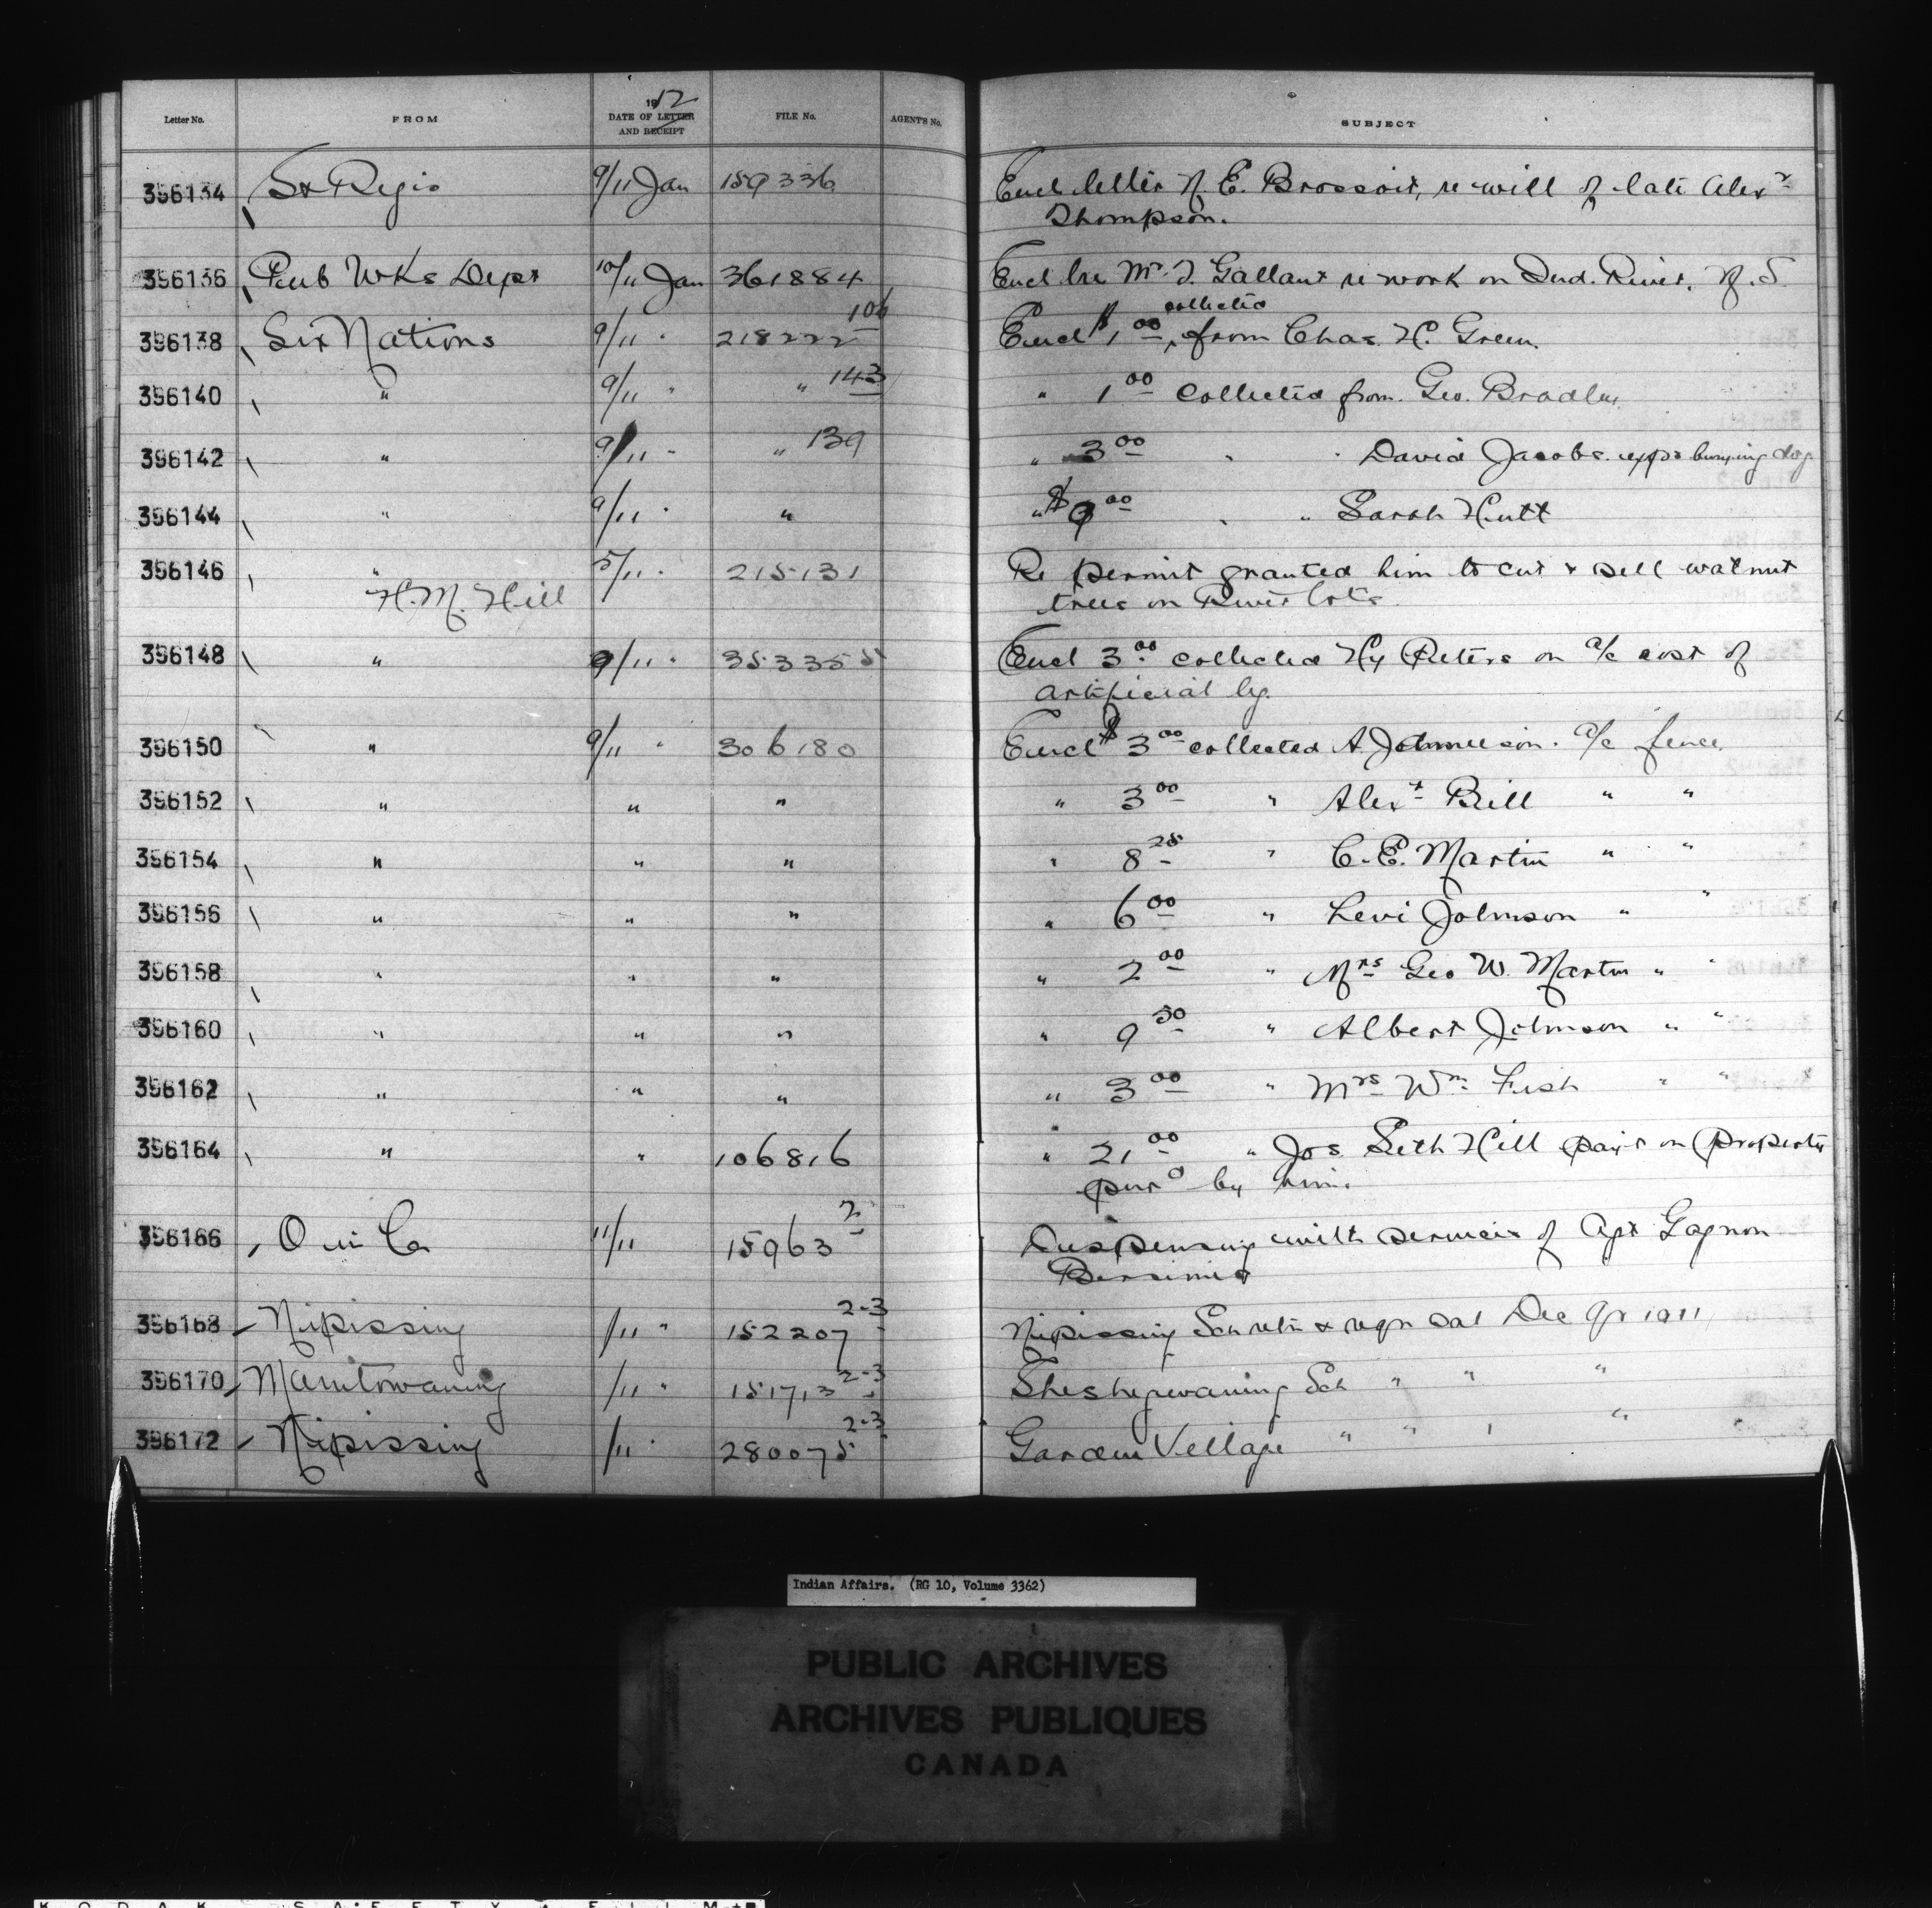 Letter No. FROM 1912 DATE OF LETTER AND RECEIPT FILE No. AGENT'S No. SUBJECT
396134 St Regis 9/11 Jan 159336 Encl letter of E. Brossoit, re will of late Alexr
Thompson.
396136 Pub Wks Dept 10/11 Jan 361884 Encl Mr. Gallant re work on Ind. River, N.S.
396138 Six Nations 9/11 " 218222 106 Encl $1.00 collected from Chas. H. Green.
396140 " 9/11 " " 143 " 1.00 collected from Geo. Bradley
396142 " 9/11 " " 139 " 3.00 " " David Jacobs. exps burying dog
396144 " 9/11 " " " $9.00 " " Sarah Hutt
396146 " 5/11 " 215131 Re permit granted him to cut & sell walnut
H.M. Hill trees on River lots.
396148 " 9/11 " 353355 Encl 3.00 collected Hy Peters on a/c cost of
artificial leg.
396150 " 9/11 " 306180 Encl $3.00 collected A. Jamieson. a/c fence
396152 " " " " 3.00 " Alexr Bill " "
396154 " " " " 8.25 " C.E. Martin " "
396156 " " " " 6.00 " Levi Johnson " "
396158 " " " " 2.00 " Mrs Geo W. Martin " "
396160 " " " " 9.50 " Albert Johnson " "
396162 " " " " 3.00 " Mrs Wm. Fish " "
396164 " " 106816 " 21.00 " Jos Seth Hill payt on property
purd by him.
396166 O in Co 11/11 15963 2 Dispensing with services of Agt Gagnon
Bersimis
396168 Nipissing /11 " 152207 2-3 Nipissing Sch retn & reqn sal Dec Qr 1911
396170 Manitowaning /11 " 151713 2-3 Sheshegwaning Sch " " "
396172 Nipissing /11 " 280075 2-3 Garden Village " " " "
Indian Affairs. (RG 10, Volume 3362)
PUBLIC ARCHIVES
ARCHIVES PUBLIQUES
CANADA
KODAK SAFETY FILM